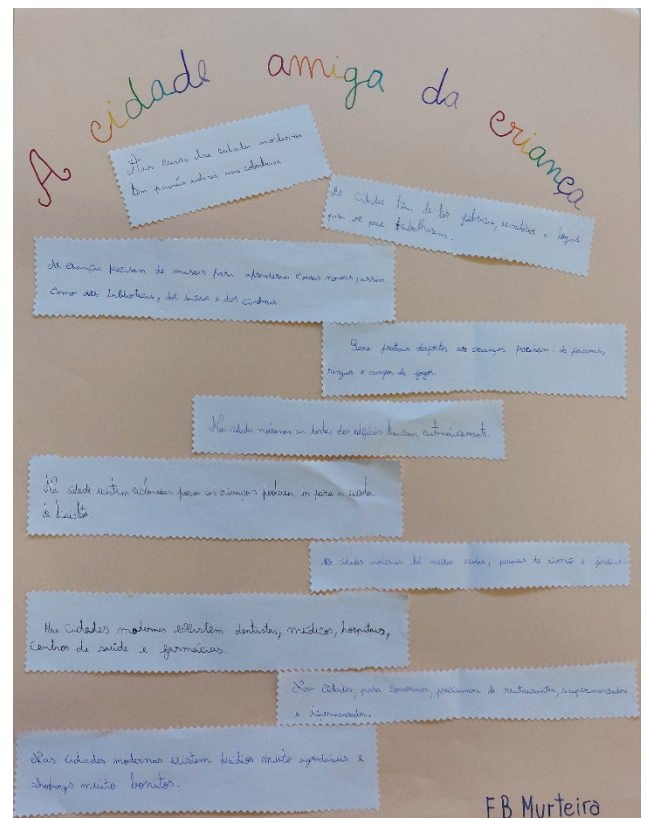 A cidade amiga da criança
Nas casas das cidades modernas
tem painéis solares nos
As cidades têm de ter fábricas, escritórios e
para os pais trabalharem.
As crianças precisam de museus para aprenderem coisas novas, assim
como das bibliotecas, dos e dos
Para praticar desportos as crianças precisam: de piscinas,
ringues e campos de jogos.
Nas cidades modernas as dos edifícios automáticamente.
Na cidade existem ciclovias para as crianças poderem ir para a escola
de bicicleta.
Nas cidades modernas há muitos, parques de diversão e jardins.
Nas cidades modernas existem dentistas, médicos, hospitais,
centros de saúde e farmácias.
Nas cidades, para comermos, precisamos de restaurantes, supermercados
e hipermercados.
Nas cidades modernas existem prédios muito agradáveis e
shoppings muito bonitos.
EB Murteira